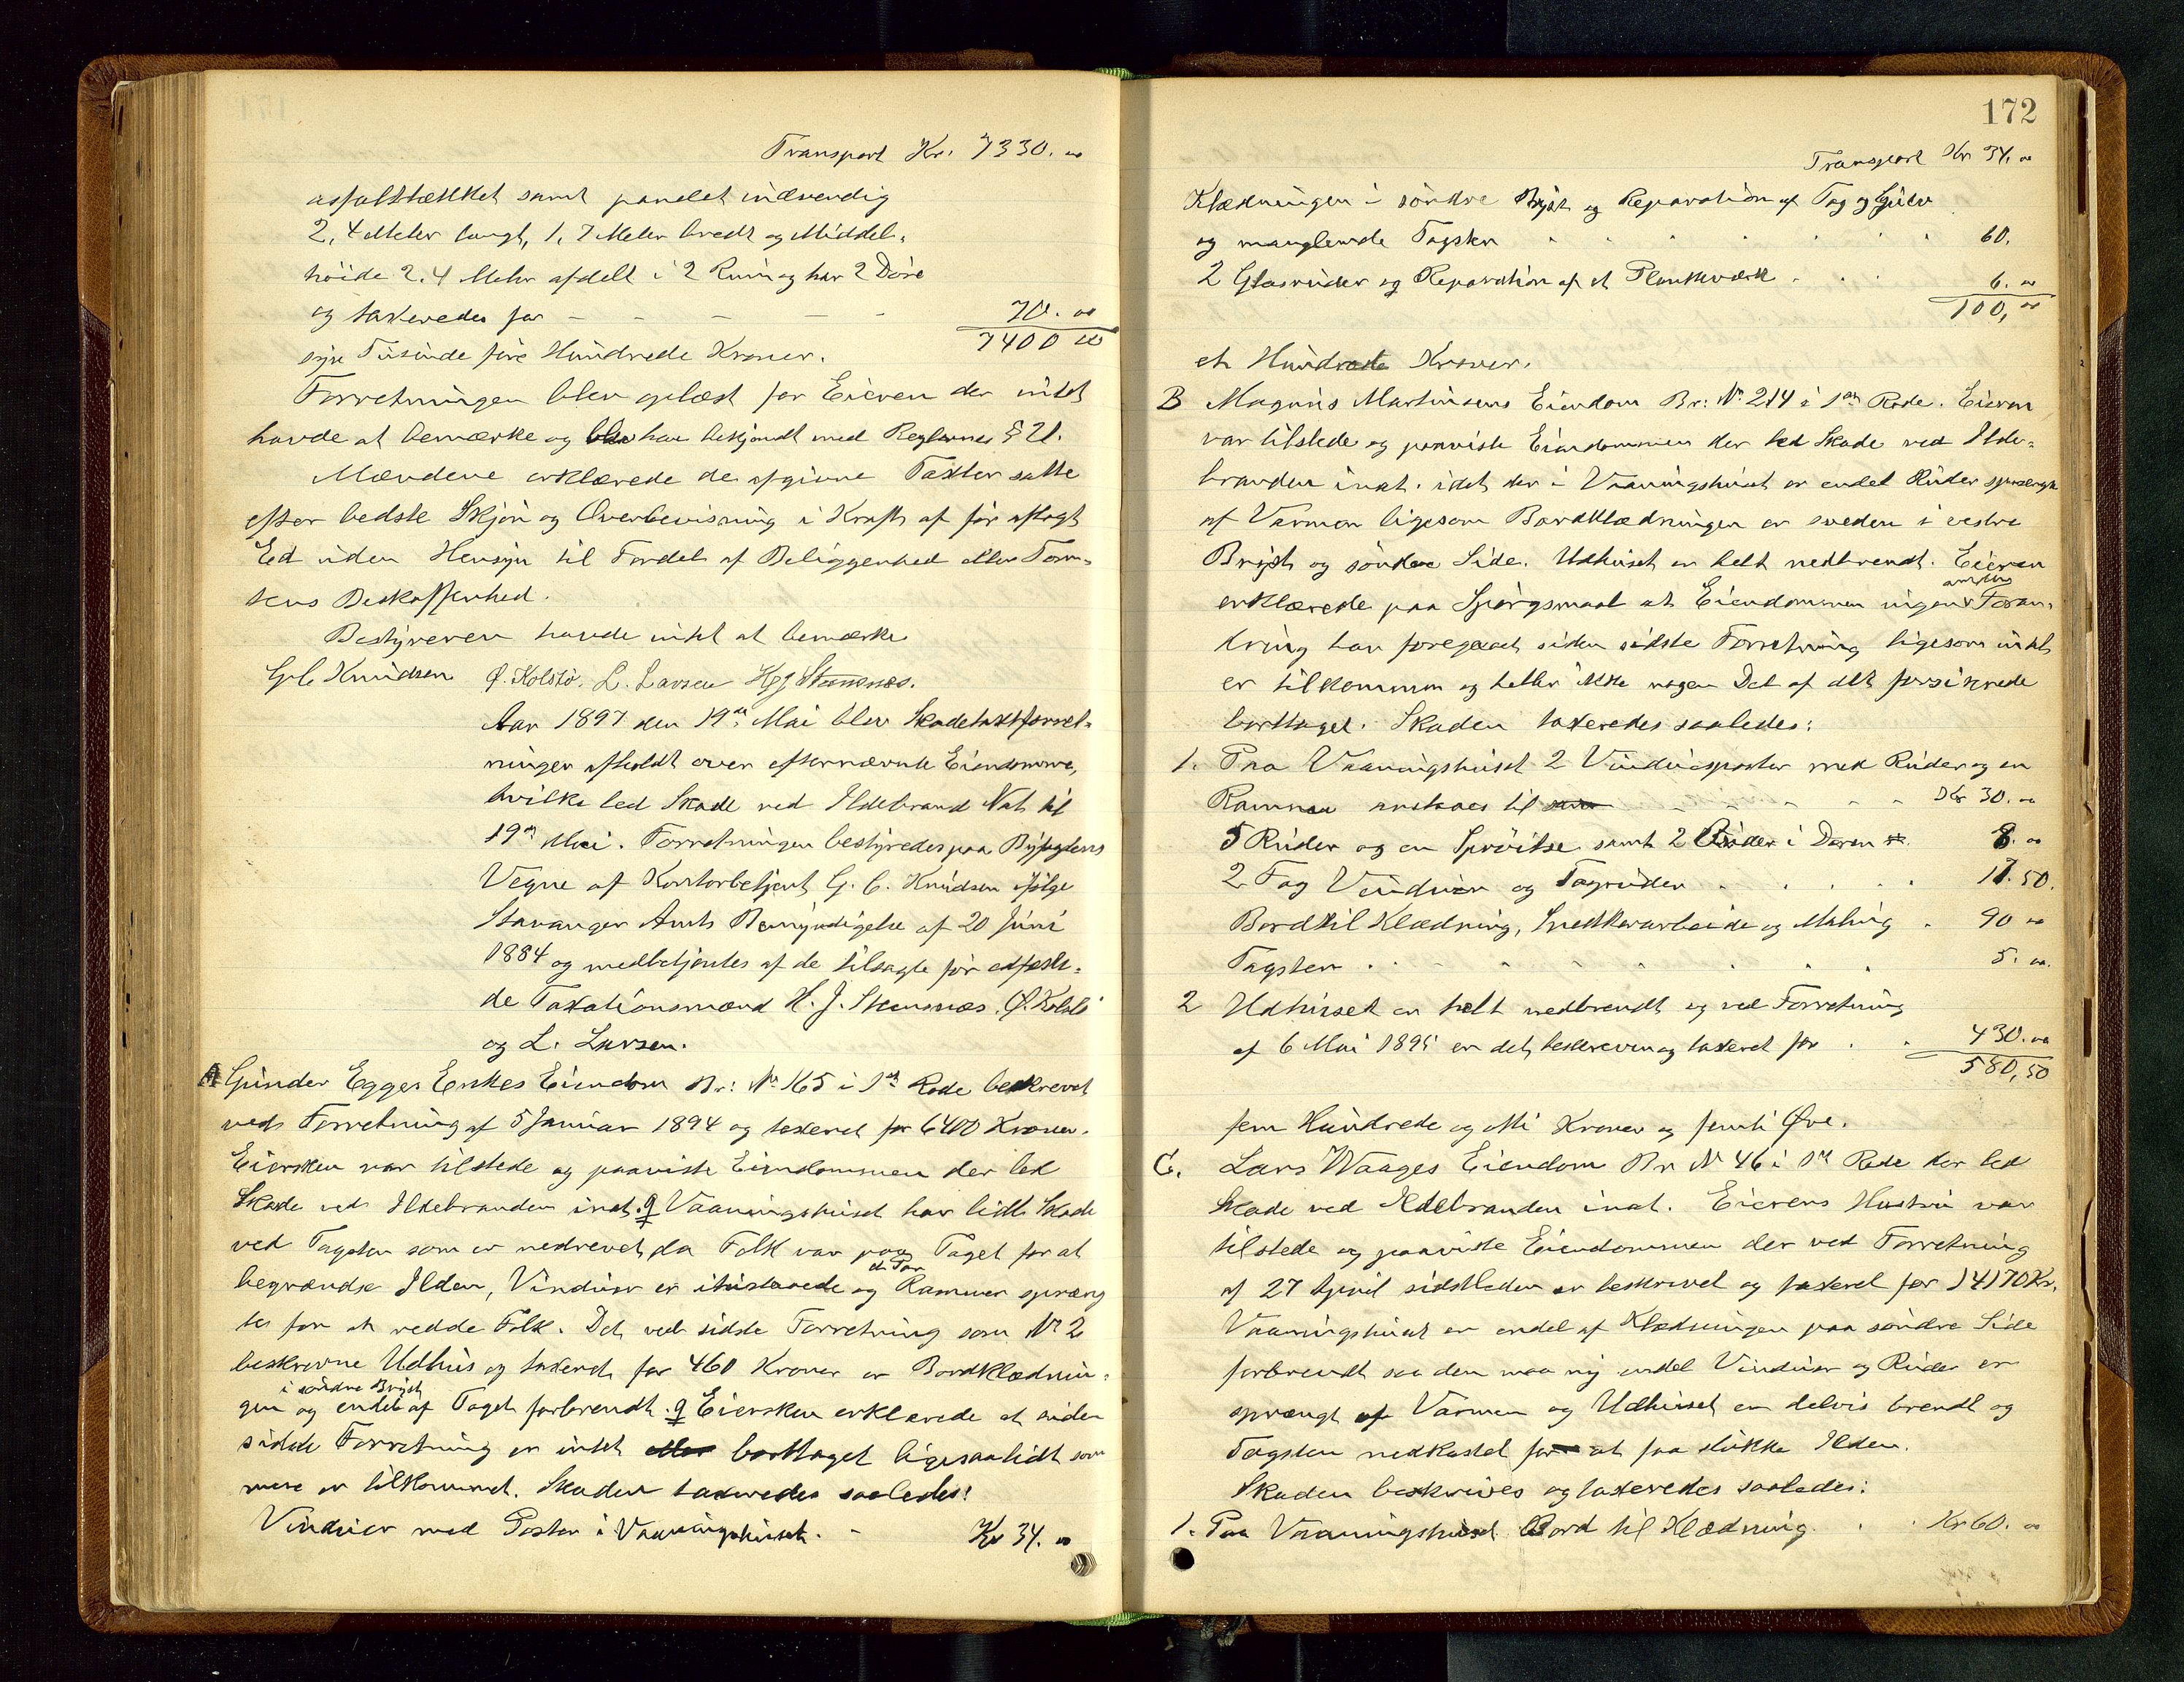 Transport Kr. 7330. 00
asfalttækket samt panelet indvendig
2,4 Meter langt, 1,7 Meter bredt og Middel-
høide 2.4 Meter afdelt i 2 Rum og har 2 Døre
og taxeredes for – – – – – 70. 00
7400 00
syv Tusinde fire Hundrede Kroner.
Forretningen blev oplæst for Eieren der intet
havde at bemærke og blev han bekjendt med Reglernes § 21.
Mændene erklærede de afgivne Taxter satte
efter bedste Skjøn og Overbevisning i Kraft af før aflagt
Ed uden Hensyn til Fordel af Beliggenhed eller Tom-
tens Beskaffenhed.
Bestyreren havde intet at bemærke
G. C. Knudsen Ø. Kolstø. L. Larsen H. J. Stensnæs.
Aar 1897 den 19de Mai blev Skadetaxtforret-
ninger afholdt over efternævnte Eiendomme,
hvilke led Skade ved Ildebrand Nat til
19de Mai. Forretningen bestyredes paa Byfogdens
Vegne af Kontorbetjent G. C. Knudsen ifølge
Stavanger Amts Bemyndigelse af 20 Juni
1884 og medbetjentes af de tilsagte før edfæste-
de Taxationsmænd H. J. Stensnæs, Ø. Kolstø
og L. Larsen.
A Gunder Egges Enkes Eiendom Br: No 165 i 1ste Rode beskrevet
ved Forretning af 5 Januar 1894 og taxeret for 6400 Kroner.
Eiersken var tilstede og paaviste Eiendommen der led
Skade ved Ildebranden inat. Vaaningshuset har lidt Skade
ved Tagsten som er nedrevet da Folk var paa Taget for at
begrændse Ilden, Vinduer er ituslaaede og Rammer spræng
tes for at redde Folk. Det ved sidste Forretning som No 2
beskrevne Udhus og taxeret for 460 Kroner er Bordklædnin-
i søndre Bryst
gen og endel af Taget forbrendt. Eiersken erklærede at siden
sidste Forretning er intet eller borttaget ligesaalidt som
mere er tilkommet. Skaden taxeredes saaledes:
Vinduer med Poster i Vaaningshuset. – Kr 34. 00
172
Transport Kr 34. 00
Klædningen i søndre Bryst og Reparation af Tag og Gulv
og manglende Tagsten 60.
2 Glasruder og Reparation af et Plankværk 6. 00
100, 00
et Hundrede Kroner.
B Magnus Martinsens Eiendom Br: No 214 i 1ste Rode. Eieren
var tilstede og paaviste Eiendommen der led Skade ved Ilde-
branden inat. idet der i Vaaningshuset er endel Ruder sprængt
af Varmen ligesom Bordklædningen er sveden i vestre
Bryst og søndre Side. Udhuset er helt nedbrendt. Eieren
erklærede paa Spørgsmaal at Eiendommen ingen Foran-
dring har foregaaet siden sidste Forretning ligesom intet
er tilkommen og heller ikke nogen Del af det forsikrede
borttaget. Skaden taxeredes saaledes:
1. Paa Vaaningshuset 2 Vinduesposter med Ruder og en
Rammer ansloges til Kr 30. 00
5 Ruder og en Sprøitse samt 2 Ruder i Døren 8. 00
2 Fag Vinduer og Tagruder 17. 50.
Bord til Klædning, Snekkerarbeide og Maling 90 00
Tagsten 5. 00.
2 Udhuset er helt nedbrendt og ved Forretning
af 6 Mai 1895 er det beskreven og taxeret for 430. 00
580,50
fem Hundrede og otti Kroner og femti Øre.
C. Lars Waages Eiendom Br No 46 i 1ste Rode der led
Skade ved Ildebranden inat. Eierens Hustru var
tilstede og paaviste Eiendommen der ved Forretning
af 27 April sidstleden er beskrevet og taxeret for 14170 Kr.
Vaaningshuset er endel af Klædningen paa søndre Side
forbrendt saa den maa ny endel Vinduer og Ruder er
sprængt af Varmen og Udhuset er delvis brendt og
Tagsten nedkastet for at faa slukke Ilden.
Skaden beskrives og taxeredes saaledes:
1. Paa Vaaningshuset Bord til Klædning Kr 60. 00